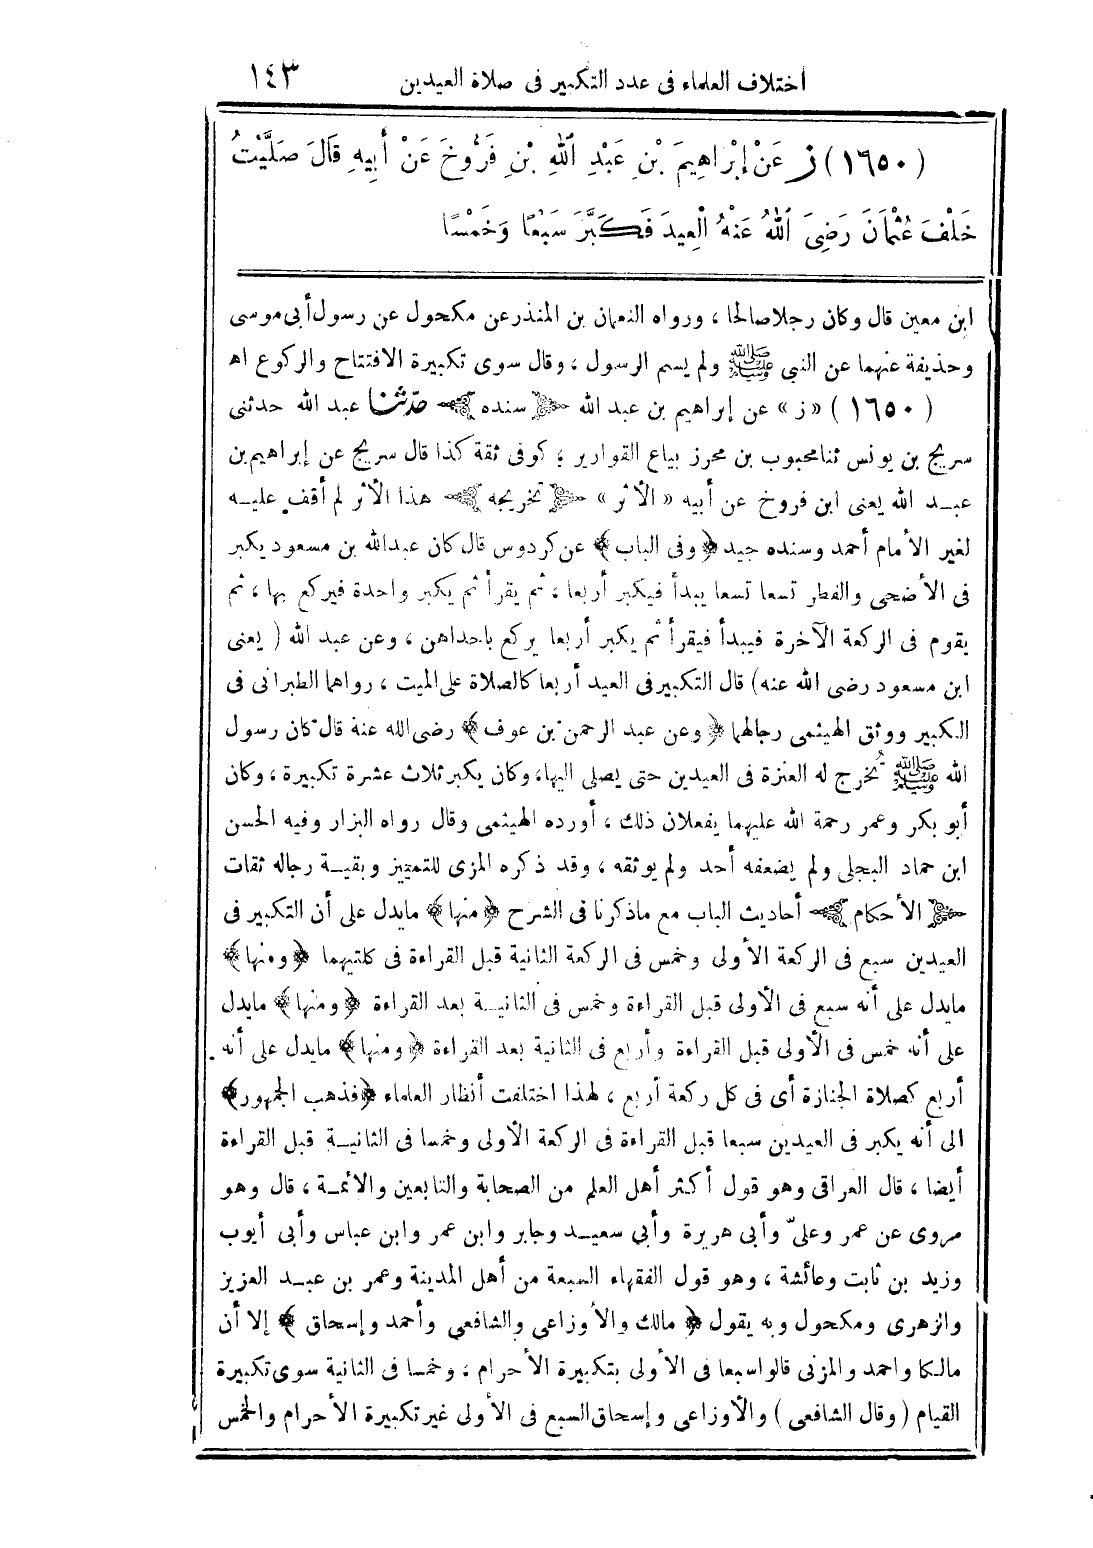 اختلاف العلماء فى عدد التكبير فى صلاة العيدين ١٤٣
(١٦٥٠) ز عَنْ إِبْرَاهِيمَ بْنِ عَبْدِ اللهِ بْنِ فَرُّوخَ عَنْ أَبِيهِ قَالَ صَلَّيْتُ
خَلْفَ عُثْمَانَ رَضِىَ اللهُ عَنْهُ الْعِيدَ فَكَبَّرَ سَبْعًا وَخَمْسًا
ابن معين قال وكان رجلا صالحا ، ورواه النعمان بن المنذر عن مكحول عن رسول أبى موسى
وحذيفة عنهما عن النبى ﷺ ولم يسم الرسول ، وقال سوى تكبيرة الافتتاح والركوع اه
(١٦٥٠) «ز» عن إبراهيم بن عبد الله ﴿ سنده ﴾ حدثنا عبد الله حدثنى
سريج بن يونس ثنا محبوب بن محرز بياع القوارير ، كوفى ثقة كذا قال سريج عن إبراهيم بن
عبد الله يعنى ابن فروخ عن أبيه « الأثر » ﴿ تخريجه ﴾ هذا الأثر لم أقف عليه
لغير الأمام أحمد وسنده جيد ﴿ وفى الباب ﴾ عن كردوس قال كان عبد الله بن مسعود يكبر
فى الأضحى والفطر تسعا تسعا يبدأ فيكبر أربعا ، ثم يقرأ ثم يكبر واحدة فيركع بها ، ثم
يقوم فى الركعة الآخرة فيبدأ فيقرأ ثم يكبر أربعا يركع باحداهن ، وعن عبد الله ( يعنى
ابن مسعود رضى الله عنه) قال التكبير فى العيد أربعا كالصلاة على الميت ، رواهما الطبرانى فى
الكبير ووثق الهيثمى رجالهما ﴿ وعن عبد الرحمن بن عوف ﴾ رضى الله عنة قال كان رسول
الله ﷺ تُخرج له العنزة فى العيدين حتى يصلى اليها، وكان يكبر ثلاث عشرة تكبيرة ، وكان
أبو بكر وعمر رحمة الله عليهما يفعلان ذلك ، أورده الهيثمى وقال رواه البزار وفيه الحسن
ابن حماد البجلى ولم يضعفه أحد ولم يوثقه ، وقد ذكره المزى للتمييز وبقية رجاله ثقات
﴿ الأحكام ﴾ أحاديث الباب مع ماذكرنا فى الشرح ﴿ منها ﴾ مايدل على أن التكبير فى
العيدين سبع فى الركعة الأولى وخمس فى الركعة الثانية قبل القراءة فى كلتيهما ﴿ ومنها ﴾
مايدل على أنه سبع فى الأولى قبل القراءة وخمس فى الثانية بعد القراءة ﴿ ومنها ﴾ مايدل
على أنه خمس فى الأولى قبل القراءة وأربع فى الثانية بعد القراءة ﴿ ومنها ﴾ مايدل على أنه
أربع كصلاة الجنازة أى فى كل ركعة أربع ، لهذا اختلفت أنظار العلماء ﴿ فذهب الجمهور ﴾
الى أنه يكبر فى العيدين سبعا قبل القراءة فى الركعة الأولى وخمسا فى الثانية قبل القراءة
أيضا ، قال العراقى وهو قول أكثر أهل العلم من الصحابة والتابعين والائمة ، قال وهو
مروى عن عمر وعلىّ وأبى هريرة وأبي سعيد وجابر وابن عمر وابن عباس وأبى أيوب
وزيد بن ثابت وعائشة ، وهو قول الفقهاء السبعة من أهل المدينة وعمر بن عبد العزيز
والزهرى ومكحول وبه يقول ﴿ مالك والأوزاعى والشافعى وأحمد وإسحاق ﴾ إلا أن
مالكا واحمد والمزنى قالوا سبعا فى الأولى بتكبيرة الأحرام ، وخمسا فى الثانية سوى تكبيرة
القيام ( وقال الشافعى ) والأوزاعى وإسحاق السبع فى الأولى غير تكبيرة الأحرام والخمس